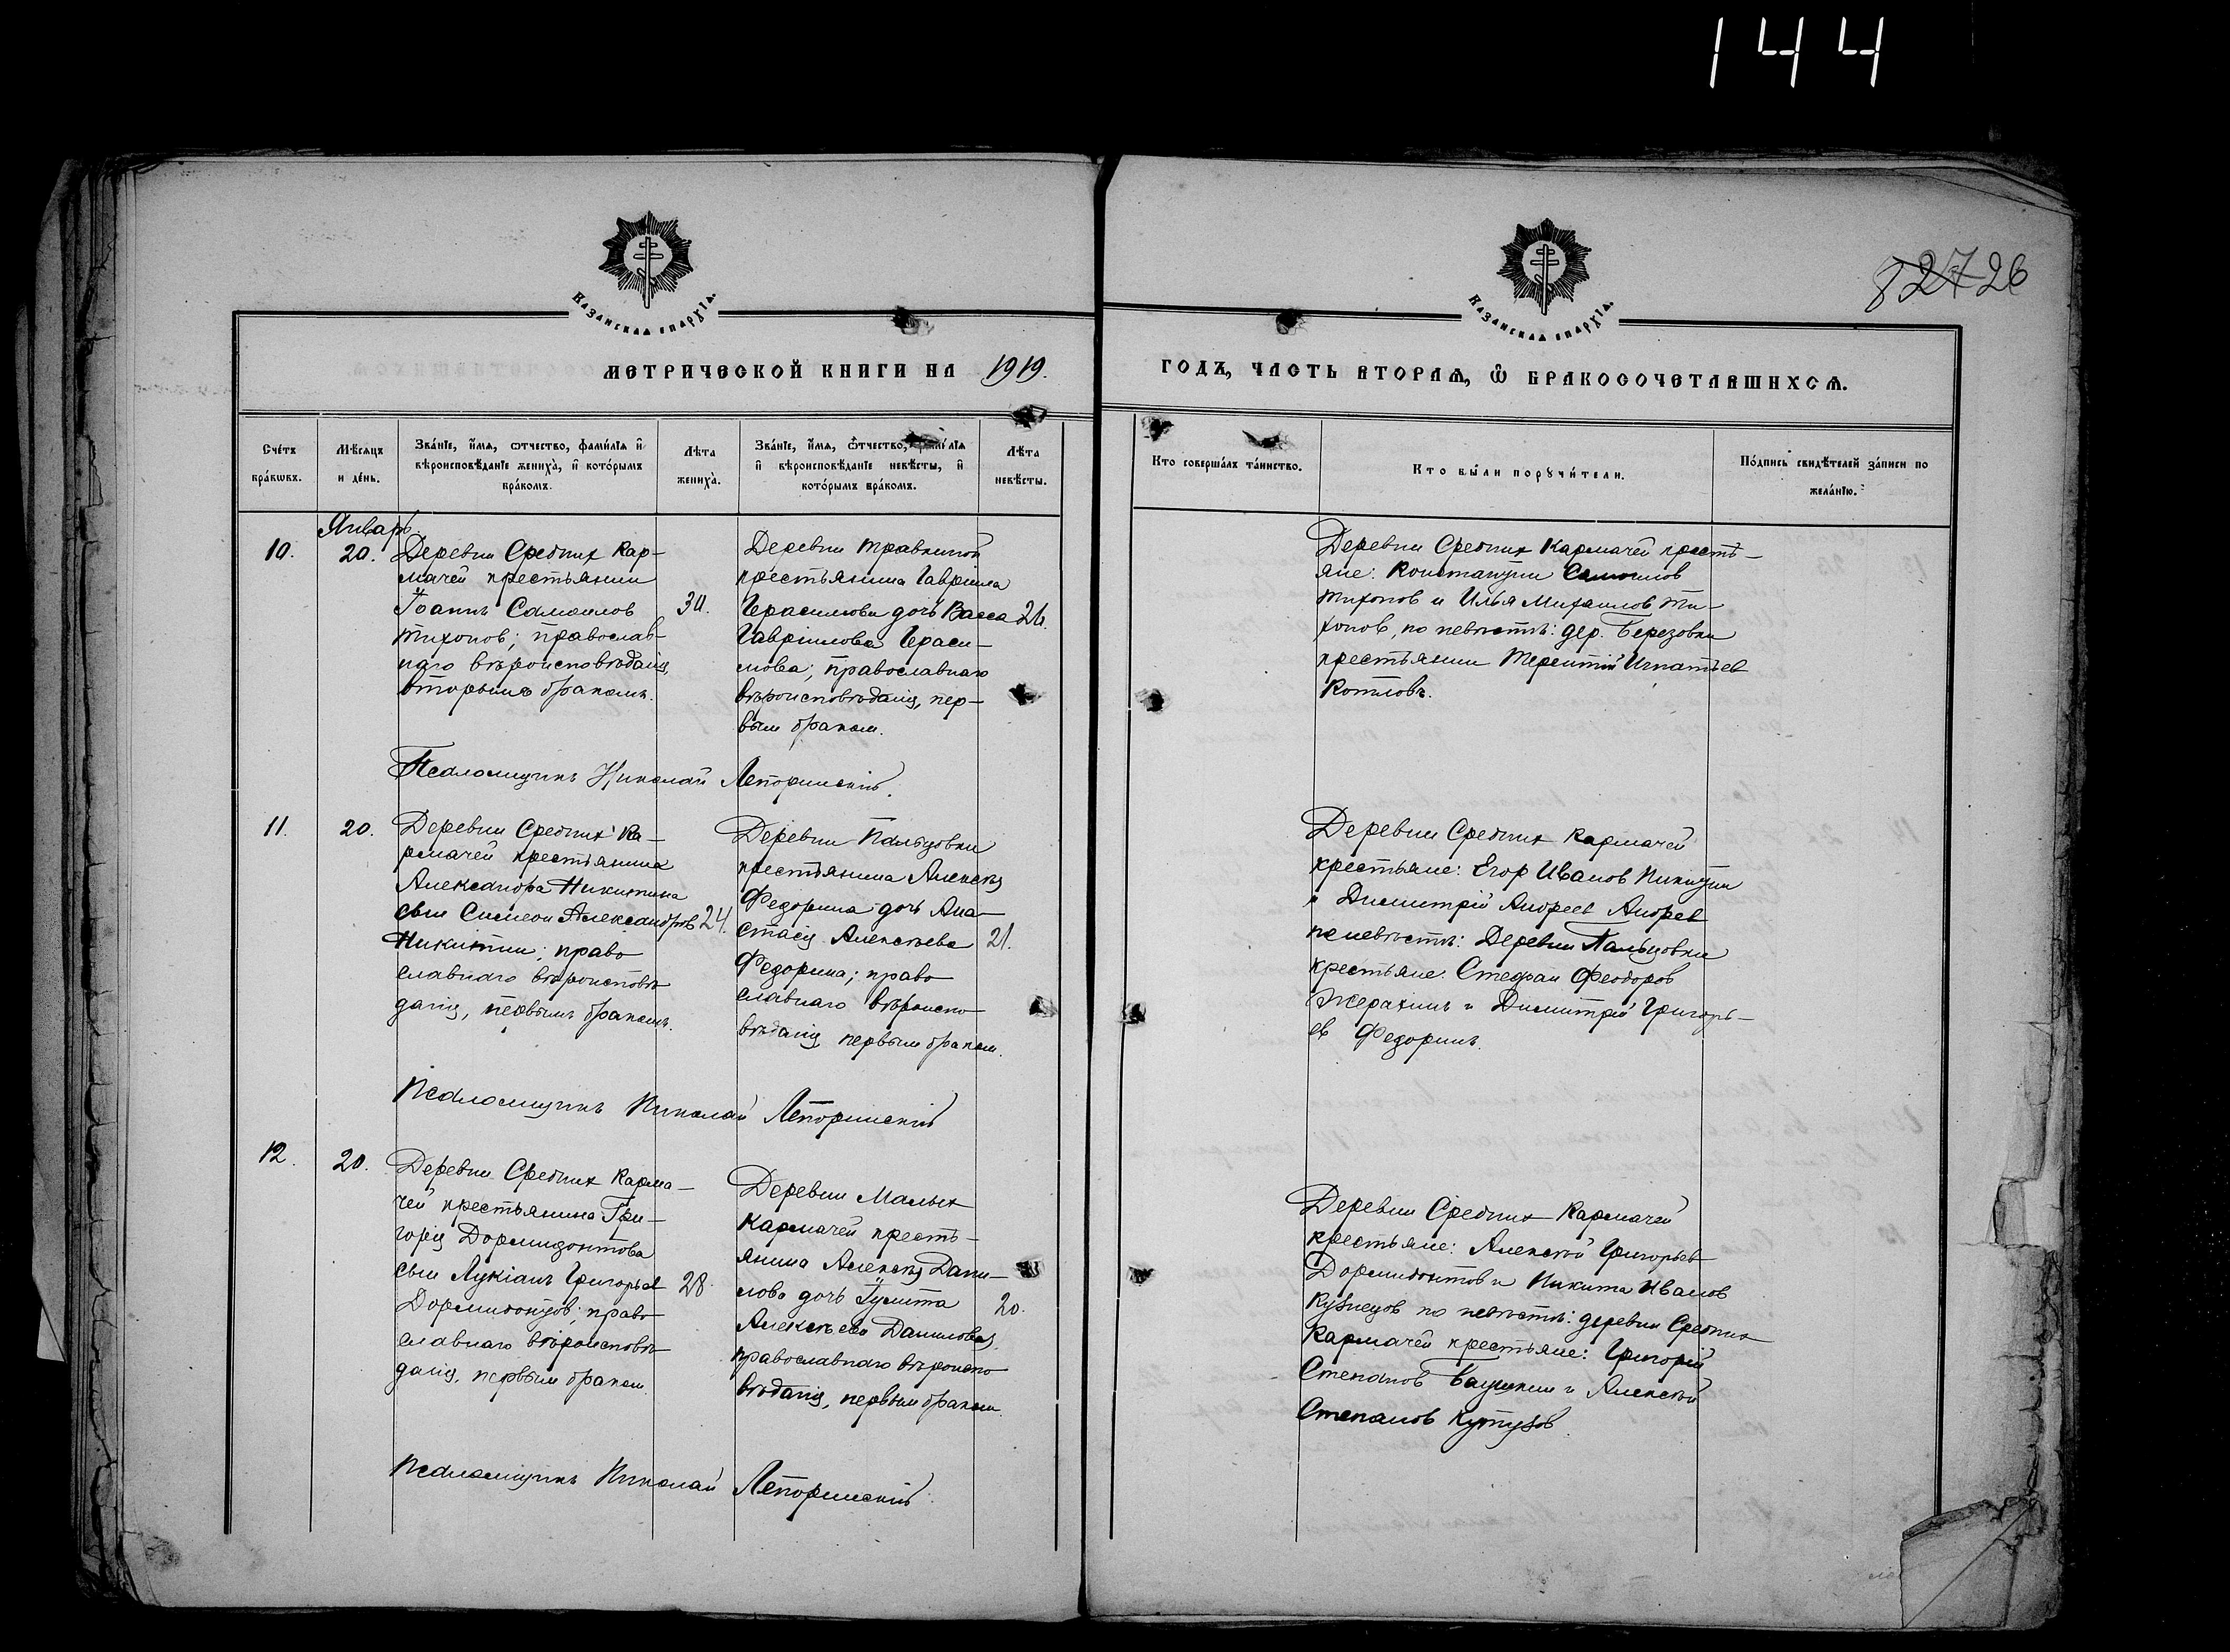 144
Казанская епархїѧ.
Казанская епархїѧ.
82726
МЕТРИЧЕСКОЙ КНИГИ НА 1919.
ГОДЪ, ЧАСТЬ ВТОРАѦ, Ѿ БРАКОСОЧЕТАВШИХСѦ.
Сче́тъ бра́кѡвъ.
Мѣ́сѧцъ и де́нь.
Зва́нїе, и́мѧ, ѻтчество, фами́лїѧ и҆ вѣроисповѣ́данїе жениха̀, и҆ кото́рымъ бра́комъ.
Лѣ́та жениха̀.
Зва́нїе, и́мѧ, ѻтчество, фами́лїѧ и҆ вѣроисповѣ́данїе невѣ́сты, и҆ кото́рымъ бра́комъ.
Лѣ́та невѣ́сты.
Кто соверша́лъ та́инство.
Кто бы́ли порꙋчи́тели.
По́дпись свидѣ́телей за́писи по жела́нїю.
Январь.
10.
20.
Деревни Средних Кар-
мачей крестьянин
Іоаннъ Самоилов
Тихонов; православ-
наго вѣроисповѣданія,
вторымъ бракомъ.
30.
Деревни Травкиной
крестьянина Гавріила
Герасимова дочь Васса
Гавріилова Гераси-
мова; православнаго
вѣроисповѣданія, пер-
вым браком.
26.
Деревни Средних Кармачей кресть-
яне: Константин Самоилов
Тихонов и Илья Михаилов Ти-
хонов, по невѣстѣ: дер. Березовки
крестьянин Терентій Игнатьев
Котловъ.
Псаломщикъ Николай Лепоринскій.
11.
20.
Деревни Средних Ка-
рмачей крестьянина
Александра Никитина
сын Симеон Александров
Никитин; право
славнаго вѣроисповѣ
данія, первымъ бракомъ.
24.
Деревни Пальцовки
крестьянина Алексѣя
Федорина дочь Ана-
стасія Алексѣева
Федорина; право
славнаго вѣроиспо
вѣданія первым браком.
21.
Деревни Средних Кармачей
крестьяне: Егор Иванов Никитин
и Димитрій Андреев Андреев
по невѣстѣ: Деревни Пальцовки
крестьяне: Стефан Феодоров
Жерахинъ и Димитрій Григорь-
ев Федоринъ.
Псаломщикъ Николай Лепоринскій
12.
20.
Деревни Средних Карма-
чей крестьянина Гри-
горія Дормидонтова
сын Лукіанъ Григорьев
Дормидонтов; право
славнаго вѣроисповѣ
данія, первым браком.
28
Деревни Малых
Кармачей кресть-
янина Алексѣя Дани-
лова дочь Іулитта
Алексѣева Данилова,
православнаго вѣроиспо
вѣданія, первым браком.
20.
Деревни Средних Кармачей
крестьяне: Алексѣй Григорьев
Дормидонтов и Никита Иванов
Кузнецов по невѣстѣ: деревни Средних
Кармачей крестьяне: Григорій
Степанов и Алексѣй
Степанов Кутузов
Псаломщикъ Николай Лепоринскій.